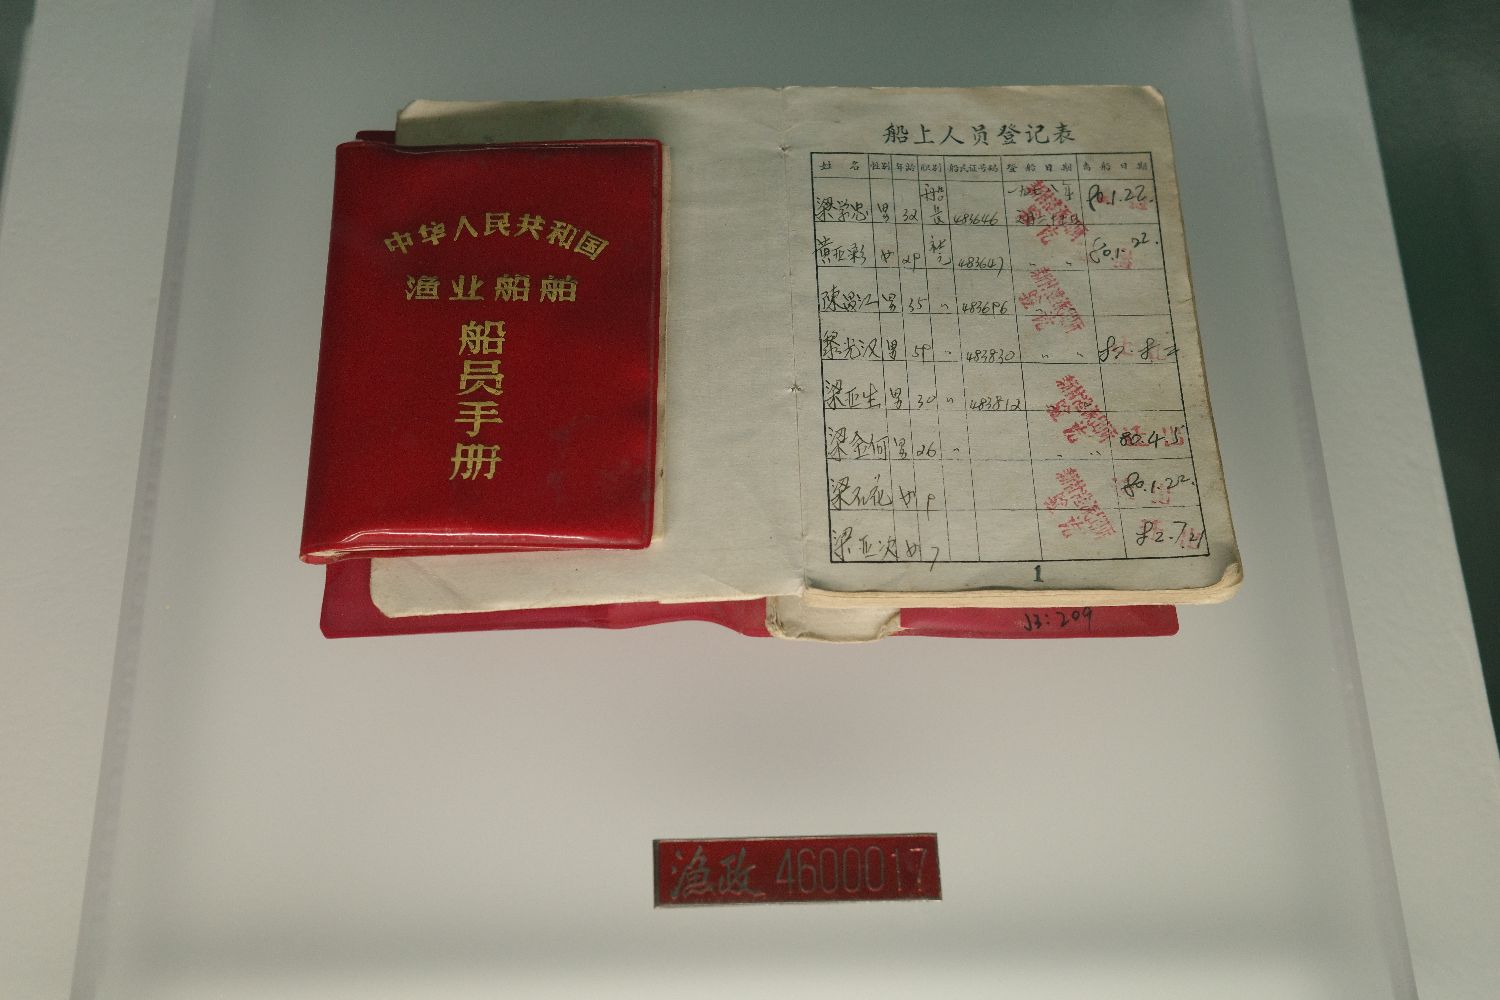 中华人民共和国
渔业船舶
船员手册
船上人员登记表
姓 名 性别 年龄 职别 船民证号码 登船日期 离船日期
梁学忠 男 32 船长 483646 一九七八年 80.1.22.
黄亚彩 女 29 483647 〃 〃 80.1.22.
陳昌江 男 35 〃 483696
黎光汉 男 59 〃 483830 〃 〃
梁亚生 男 30 〃 483812
梁金何 男 26 〃 〃 〃 80.4.5
梁石花 女 9 80.1.22.
梁亚次 女 7 82.7.21
1
J3:209
渔政 4600017